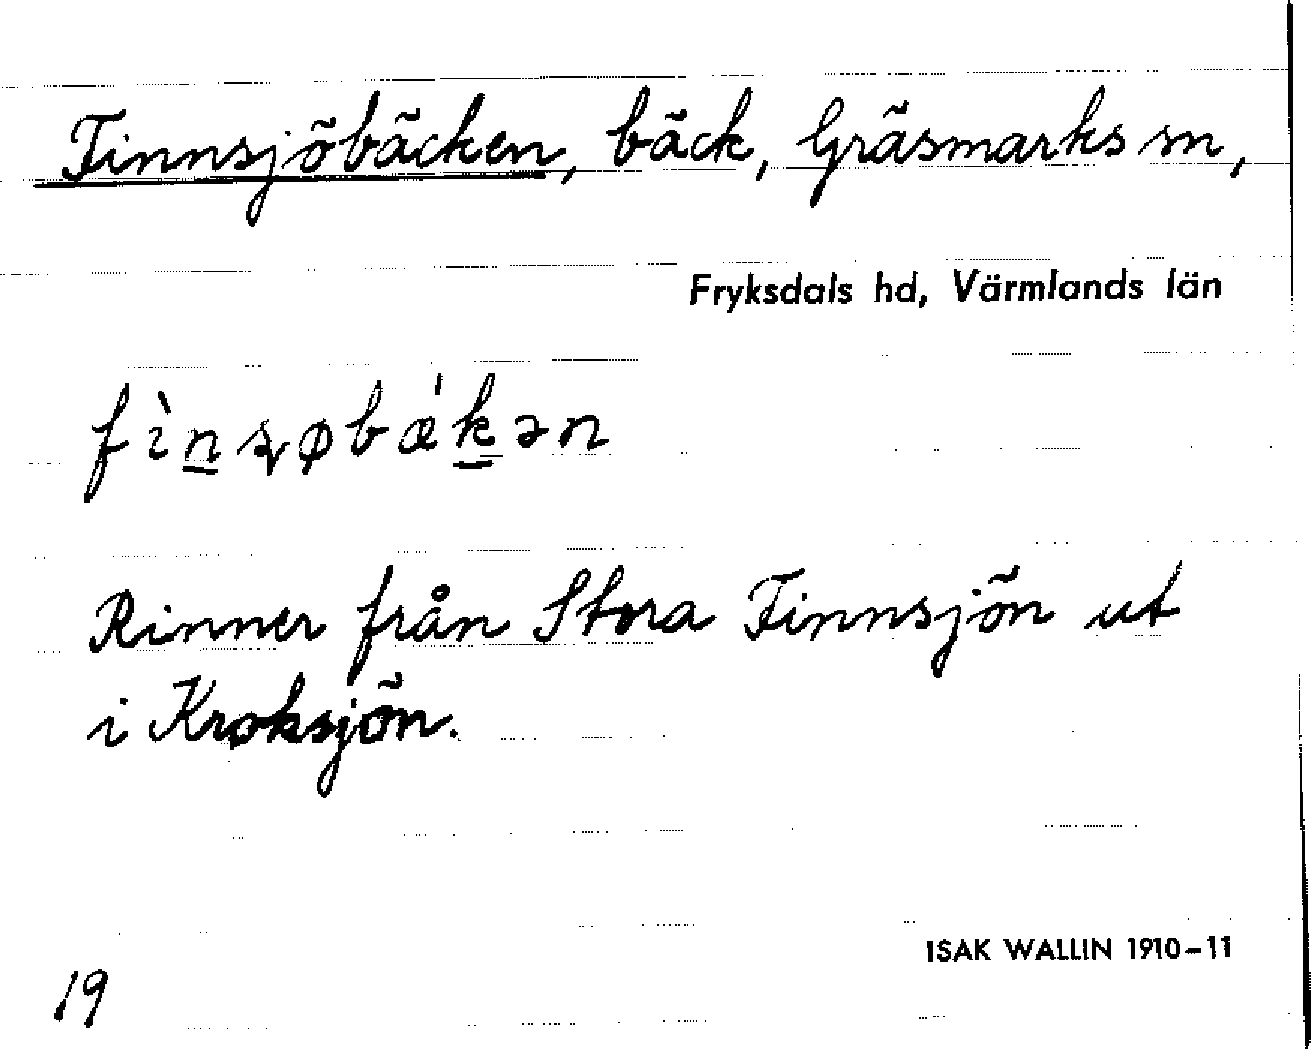 Finnsjöbäcken, bäck, Gräsmarks sn,
Fryksdals hd, Värmlands län
Rinner från Stora Finnsjön ut
i Kroksjön.
ISAK WALLIN 1910-11
19